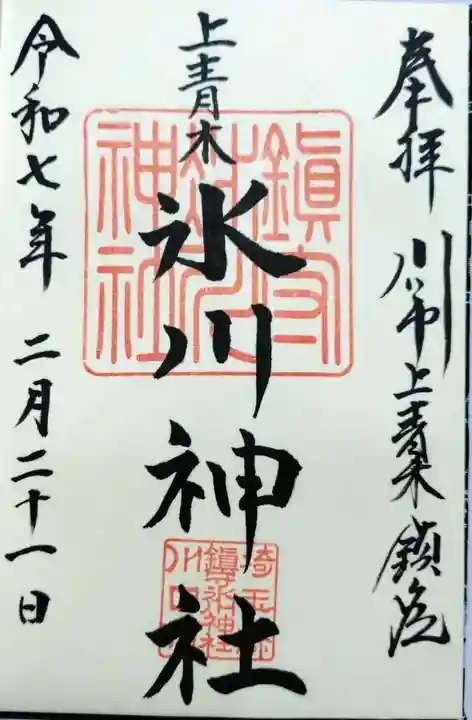 奉拝 川口市上青木鎮座
上青木
氷川神社
令和七年 二月二十一日
鎮守
氷川
神社
埼玉
鎮守氷川神社
川口